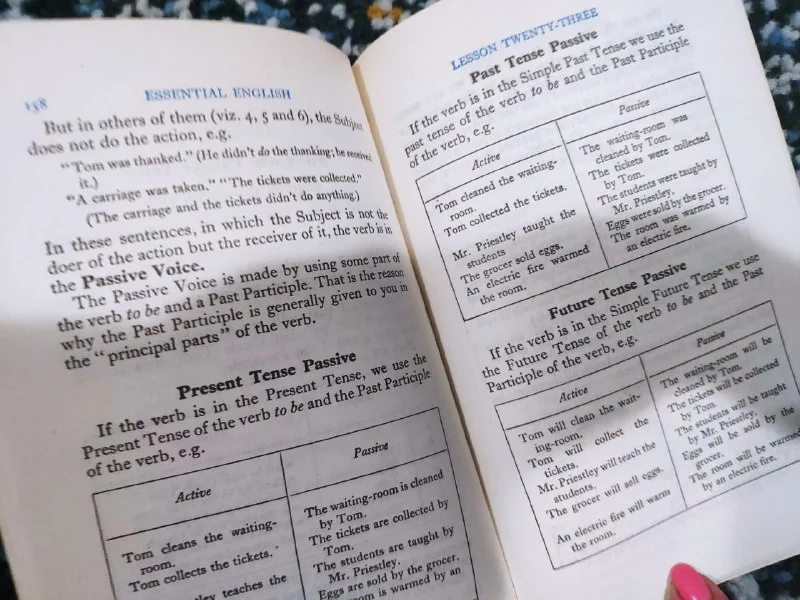 158
ESSENTIAL ENGLISH
But in others of them (viz. 4, 5 and 6), the Subject
does not do the action, e.g.
"Tom was thanked." (He didn't do the thanking; he received
it.)
"A carriage was taken." "The tickets were collected."
(The carriage and the tickets didn't do anything.)
In these sentences, in which the Subject is not the
doer of the action but the receiver of it, the verb is in
the Passive Voice.
The Passive Voice is made by using some part of
the verb to be and a Past Participle. That is the reason
why the Past Participle is generally given to you in
the "principal parts" of the verb.
Present Tense Passive
If the verb is in the Present Tense, we use the
Present Tense of the verb to be and the Past Participle
of the verb, e.g.
Active
Tom cleans the waiting-
room.
Tom collects the tickets.
teaches the
Passive
The waiting-room is cleaned
by Tom.
The tickets are collected by
Tom.
The students are taught by
Mr. Priestley.
Eggs are sold by the grocer.
room is warmed by an
LESSON TWENTY-THREE
Past Tense Passive
If the verb is in the Simple Past Tense we use the
past tense of the verb to be and the Past Participle
of the verb, e.g.
Active
Tom cleaned the waiting-
room.
Tom collected the tickets.
Mr. Priestley taught the
students.
The grocer sold eggs.
An electric fire warmed
the room.
Passive
The waiting-room was
cleaned by Tom.
The tickets were collected
by Tom.
The students were taught by
Mr. Priestley.
Eggs were sold by the grocer.
The room was warmed by
an electric fire.
Future Tense Passive
If the verb is in the Simple Future Tense we use
the Future Tense of the verb to be and the Past
Participle of the verb, e.g.
Active
Tom will clean the wait-
ing-room.
Tom will collect the
tickets.
Mr. Priestley will teach the
students.
The grocer will sell eggs.
An electric fire will warm
the room.
Passive
The waiting-room will be
cleaned by Tom.
The tickets will be collected
by Tom.
The students will be taught
by Mr. Priestley.
Eggs will be sold by the
grocer.
The room will be warmed
by an electric fire.